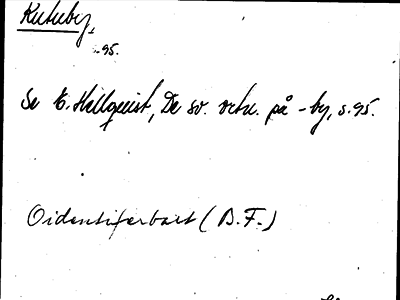 Kutuby,
s. 95.
Se E. Hellquist, De sv. ortn. på -by, s. 95.
Oidentifierbart (B.F.)